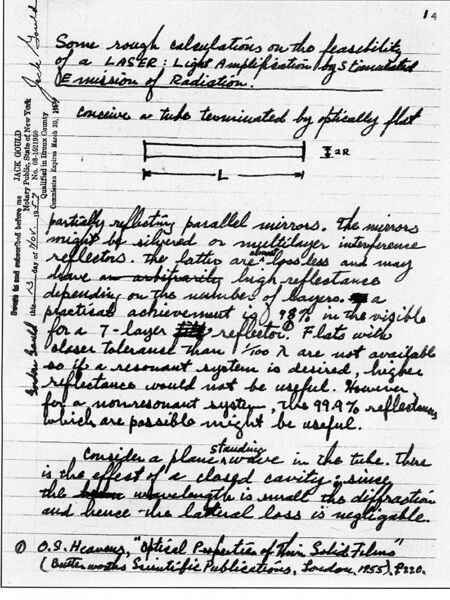 1 a
Some rough calculations on the feasibility
of a LASER: Light Amplification by Stimulated
Emission of Radiation.
conceive a tube terminated by optically flat
2R
L
partially reflecting parallel mirrors. The mirrors
might be silvered or multilayer interference
reflectors. The latter are almost lossless and may
have an arbitrarily high reflectance
depending on the number of layers. A
practical achievement is 98% in the visible
for a 7-layer reflector.① Flats with
closer tolerance than 1/100 λ are not available
so if a resonant system is desired, higher
reflectance would not be useful. However
for a nonresonant system, the 99.9% reflectances
which are possible might be useful.
Consider a plane standing wave in the tube. There
is the effect of a closed cavity; since
the wavelength is small the diffraction
and hence the lateral loss is negligable.
① O.S. Heavens, "Optical Properties of Thin Solid Films"
(Butterworths Scientific Publications, London, 1955), p.220.
Sworn to and subscribed before me
this 13 day of Nov. 1957
JACK GOULD
Notary Public, State of New York
No. 03-1621950
Qualified in Bronx County
Commission Expires March 30, 1959
Jack Gould
Gordon Gould